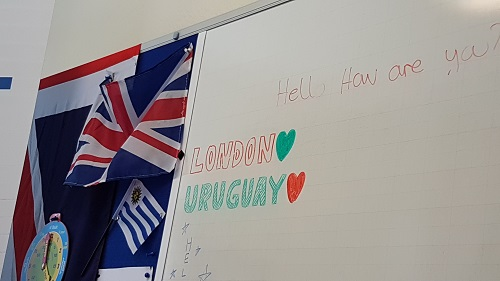 Hello How are you?
LONDON
URUGUAY
H
E
L